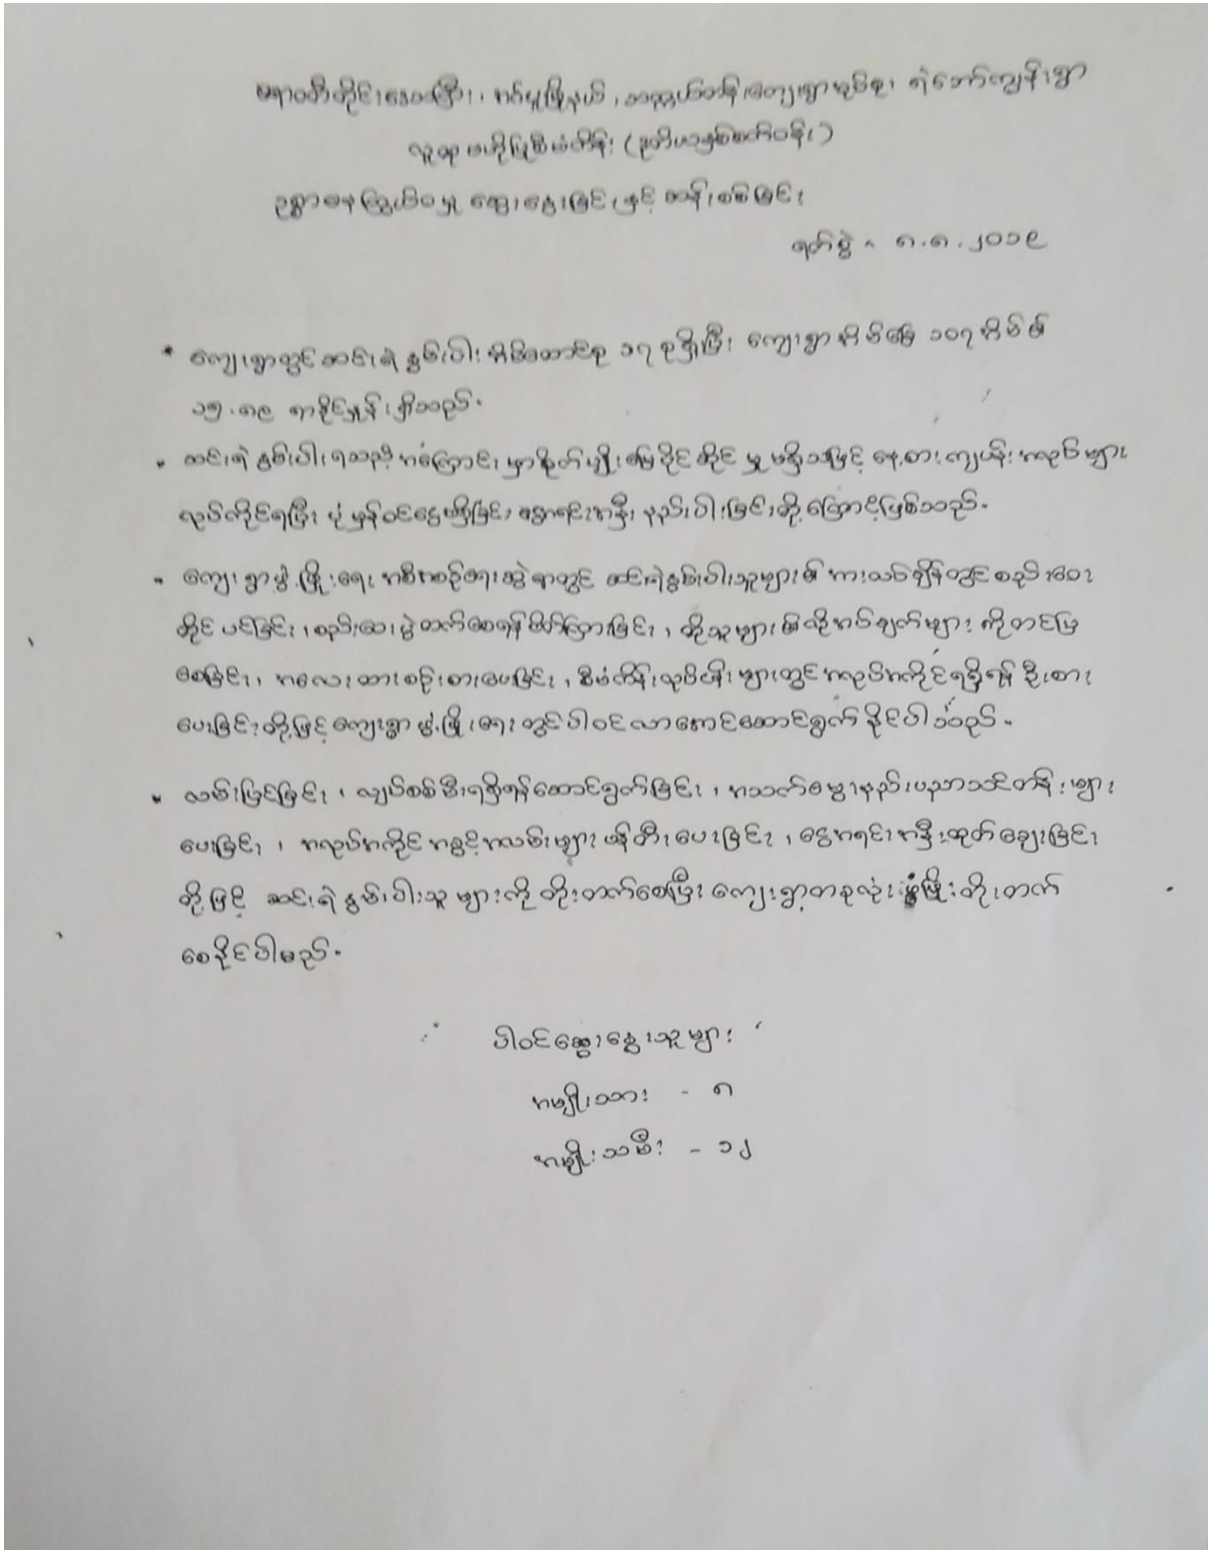 ဧရာဝတီတိုင်းဒေသကြီး၊ ငပုမြို့နယ်၊ ကျေးရွာအုပ်စု၊ ရဲဘော်ကျွန်းရွာ
လူထု ဗဟိုပြုစီမံကိန်း (ဒုတိယနှစ်စက်ဝန်း)
ဥရွာနေ ကြွယ်ဝမှု ဆွေးနွေးခြင်းနှင့် ဆန်းစစ်ခြင်း
ရက်စွဲ - ၈.၈.၂၀၁၉
* ကျေးရွာတွင်ဆင်းရဲနွမ်းပါးအိမ်ထောင်စု ၁၇ စုရှိပြီး ကျေးရွာအိမ်ခြေ ၁၀၇ အိမ်၏
၁၅.၈၉ ရာခိုင်နှုန်းရှိသည်.
* ဆင်းရဲနွမ်းပါးရသည့်အကြောင်းမှာစိုက်ပျိုးမြေပိုင်ဆိုင်မှုမရှိသဖြင့် နေ့စားကျပန်းအလုပ်များ
လုပ်ကိုင်ရပြီး ပုံမှန်ဝင်ငွေမရှိခြင်း၊ ငွေအရင်းအနှီး နည်းပါးခြင်းတို့ကြောင့်ဖြစ်သည်.
- ကျေးရွာဖွံ့ဖြိုးရေး အစီအစဉ်ရေးဆွဲရာတွင် ဆင်းရဲနွမ်းပါးသူများ၏ အားလပ်ချိန်တွင်စည်းဝေး
တိုင်ပင်ခြင်း၊ စည်းဝေးပွဲတက်စေရန်ဖိတ်ကြားခြင်း၊ ထိုသူများ၏လိုအပ်ချက်များကိုတင်ပြ
စေခြင်း၊ အလေးထားစဉ်းစားပေးခြင်း၊ စီမံကိန်းလုပ်ငန်းများတွင်အလုပ်အကိုင်ရရှိရန်ဦးစား
ပေးခြင်းတို့ဖြင့်ကျေးရွာဖွံ့ဖြိုးရေးတွင်ပါဝင်လာအောင်ဆောင်ရွက်နိုင်ပါသည်.
* လမ်းပြင်ခြင်း၊ လျှပ်စစ်မီးရရှိရန်ဆောင်ရွက်ခြင်း၊ အသက်မွေးနည်းပညာသင်တန်းများ
ပေးခြင်း၊ အလုပ်အကိုင်အခွင့်အလမ်းများဖန်တီးပေးခြင်း၊ ငွေအရင်းအနှီးထုတ်ချေးခြင်း
တို့ဖြင့် ဆင်းရဲနွမ်းပါးသူများကို တိုးတက်စေပြီး ကျေးရွာတစုလုံး ဖွံ့ဖြိုးတိုးတက်
စေနိုင်ပါမည်.
ပါဝင်ဆွေးနွေးသူများ
အမျိုးသား - ၈
အမျိုးသမီး - ၁၂